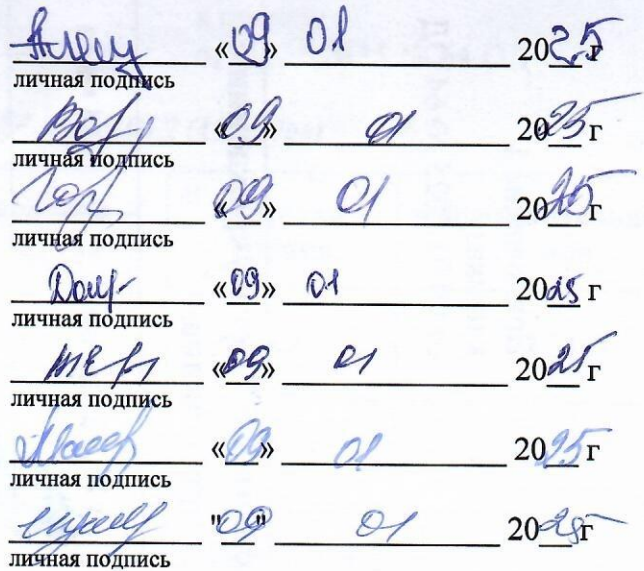 «09» 01 2025 г
личная подпись
«09» 01 2025 г
личная подпись
«09» 01 2025 г
личная подпись
«09» 01 2025 г
личная подпись
«09» 01 2025 г
личная подпись
«09» 01 2025 г
личная подпись
"09" 01 2025 г
личная подпись